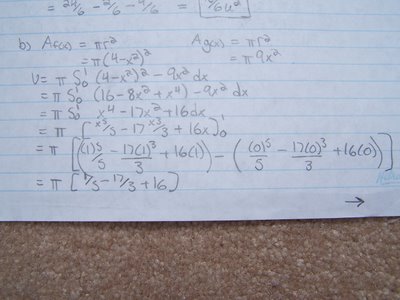 = 24/6 - 2/6 - 9/6 =
b) Af(x) = πr² Ag(x) = πr²
= π(4-x²)² = π9x²
V = π ∫₀¹ (4-x²)² - 9x² dx
= π ∫₀¹ (16 - 8x² + x⁴) - 9x² dx
= π ∫₀¹ x⁴ - 17x² + 16 dx
= π [x⁵/5 - 17x³/3 + 16x]₀¹
= π [((1)⁵/5 - 17(1)³/3 + 16(1)) - ((0)⁵/5 - 17(0)³/3 + 16(0))]
= π [1/5 - 17/3 + 16]
→